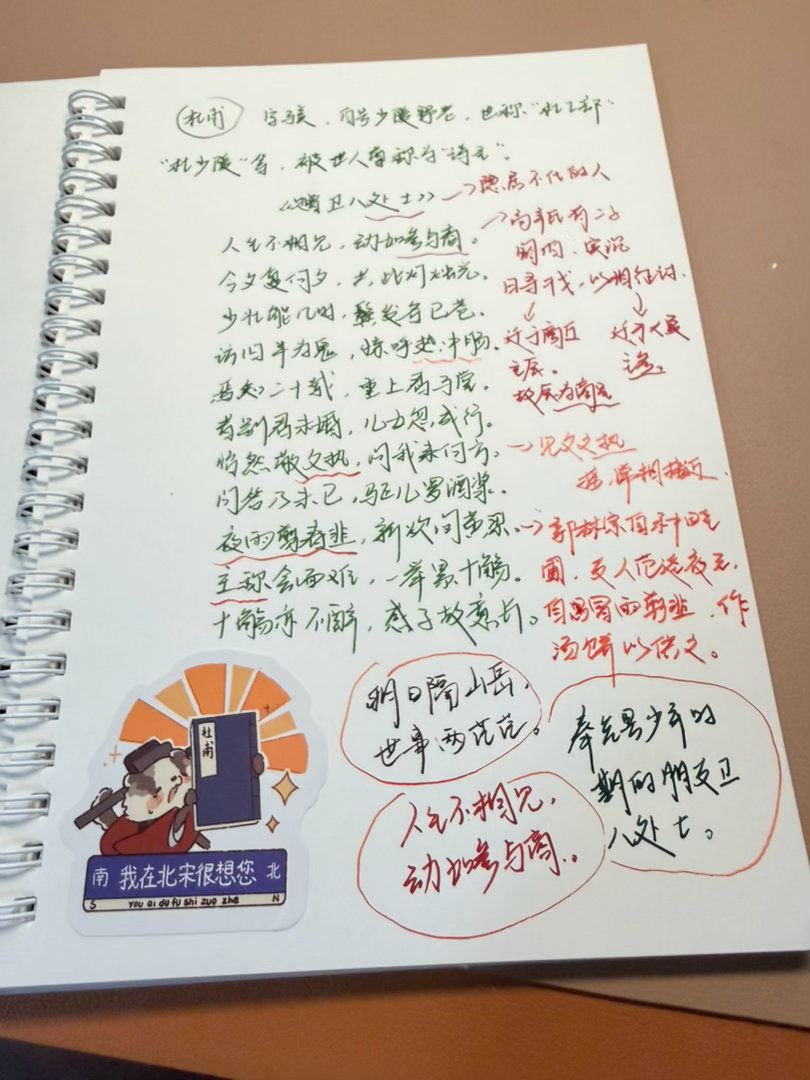 杜甫 字子美，自号少陵野老，也称"杜工部"
"杜少陵"等，被世人尊称为"诗圣"。
《赠卫八处士》→隐居不仕的人
人生不相见，动如参与商。
今夕复何夕，共此灯烛光。
少壮能几时，鬓发各已苍。
访旧半为鬼，惊呼热中肠。
焉知二十载，重上君子堂。
昔别君未婚，儿女忽成行。
怡然敬父执，问我来何方。
问答乃未已，驱儿罗酒浆。
夜雨剪春韭，新炊间黄粱。
主称会面难，一举累十觞。
十觞亦不醉，感子故意长。
→高辛氏有二子
阏伯、实沉
日寻干戈，以相征讨。
迁于商丘
主辰。
故辰为商星
迁于大夏
主参。
→见父之执
→郭林宗自种畦
圃，友人范逵夜至，
自冒雨剪韭，作
汤饼以供之。
明日隔山岳，
世事两茫茫。
人生不相见，
动如参与商。
奉先县少年时
期的朋友卫
八处士。
杜甫
南 我在北宋很想您 北
S you ai du fu shi zuo zhe N